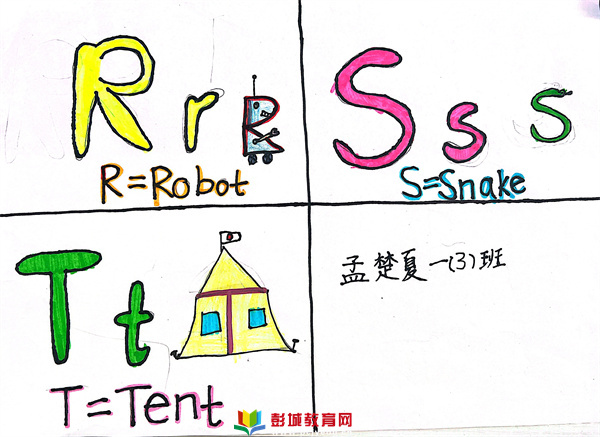 R r
R=Robot
S s S
S=Snake
T t
T=Tent
孟楚夏一(3)班
彭城教育网